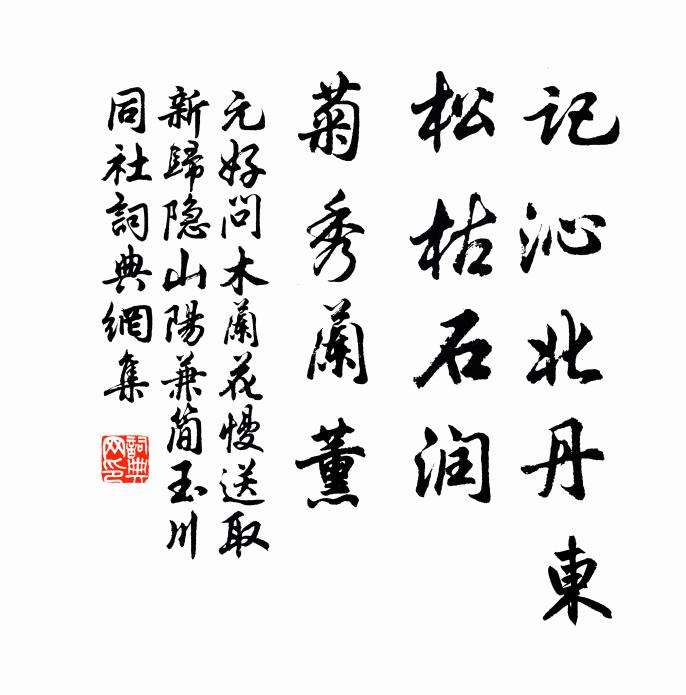 记沁北丹東
松枯石润
菊秀蘭薰
元好问木蘭花慢送取
新歸隐山陽兼简玉川
同社詞典網集
詞典網印